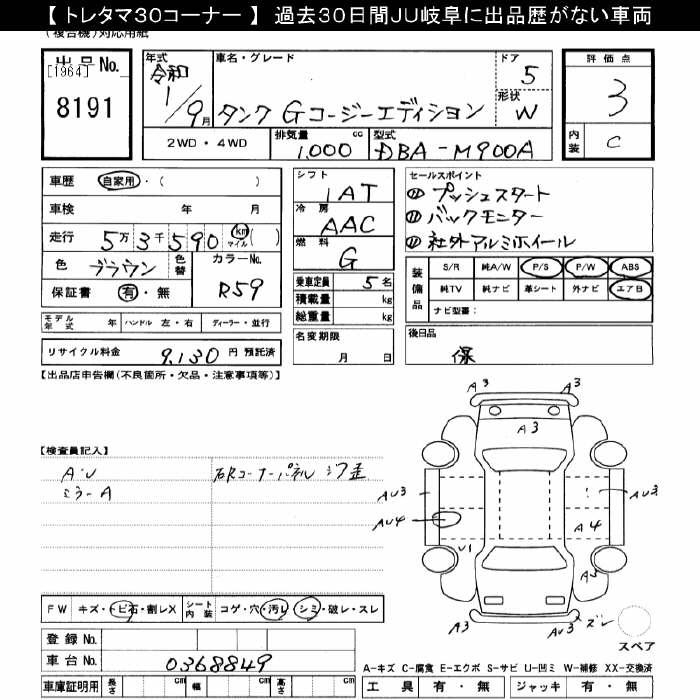 【 トレタマ30コーナー 】 過去30日間JU岐阜に出品歴がない車両
(複合機)対応用紙
出品No.
[1964]
8191
年式
令和
1/9月
車名・グレード
タンク Gコージーエディション
ドア
5
形状
W
評価点
3
内装
C
2WD・4WD
排気量
1,000 cc
型式
DBA-M900A
車歴 自家用・( )
車検 年 月
走行 5万3千590 km マイル ( )
色 ブラウン 色替
カラーNo.
R59
保証書 有・無
モデル年式 年 ハンドル 左・右 ディーラー・並行
リサイクル料金 9,130 円 預託済
シフト
IAT
冷房
AAC
燃料
G
乗車定員 5名
積載量 kg
総重量 kg
名変期限
月 日
セールスポイント
プッシュスタート
バックモニター
社外アルミホイール
装備品
S/R 純A/W P/S P/W ABS
純TV 純ナビ 革シート 外ナビ エアB
ナビ型番:
後日品
保
【出品店申告欄(不良箇所・欠品・注意事項等)】
【検査員記入】
A・U
ミラーA
右Rコーナーパネル シワ歪
A3 A3
A3
AU3 AU3
AU4
A4
U1
A3
A3 AU3 ズレ
スペア
FW キズ・トビ石・割レX シート内装 コゲ・穴・汚レ・シミ・破レ・スレ
登録No.
車台No. 0368849
車庫証明用 長さ cm 幅 cm 高さ cm
A-キズ C-腐食 E-エクボ S-サビ U-凹ミ W-補修 XX-交換済
工具 有・無 ジャッキ 有・無